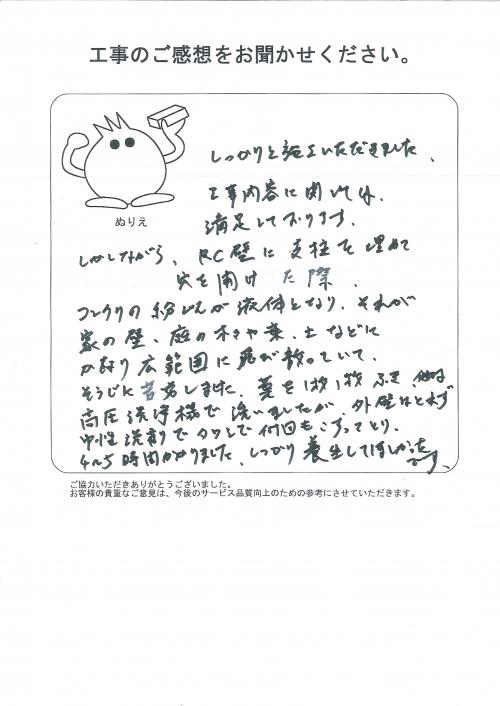 工事のご感想をお聞かせください。
しっかりと施工いただきました、
工事内容に関しては、
満足しております。
ぬりえ
しかしながら、RC壁に支柱を埋めて
穴を開けた際、
コンクリの粉じんが液体となり、それが
家の壁、庭の木々や葉、土などに
かなり広範囲に飛び散っていて、
そうじに苦労しました。葉を1枚1枚ふき、
高圧洗浄機で洗いましたが、外壁はとれず
中性洗剤でタワシで何回もこすってとり、
4〜5時間かかりました、しっかり養生してほしかった
です、
ご協力いただきありがとうございました。
お客様の貴重なご意見は、今後のサービス品質向上のための参考にさせていただきます。